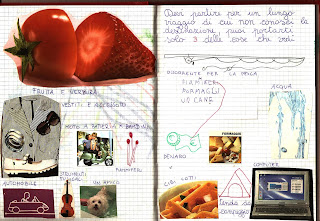 FRUTTA E VERDURA
VESTITI E ACCESSORI
MOTO A BATTERIA X BAMBINI
STRUMENTI
MUSICALI
AUTOMOBILE
UN AMICO
Devi partire per un lungo
viaggio di cui non conosci la
destinazione, puoi portarti
solo 3 delle cose che vedi
OCCORRENTE PER LA PESCA
MAMMA E
UN CANE
ACQUA
DENARO
FORMAGGIO
COMPUTER
CIBI COTTI
Tenda da
campeggio